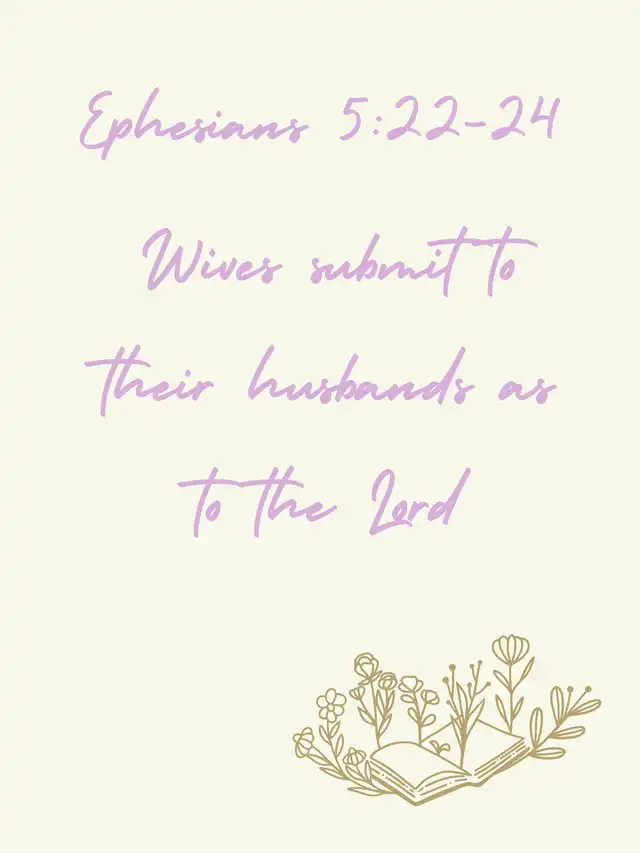 Ephesians 5:22-24
Wives submit to
their husbands as
to the Lord